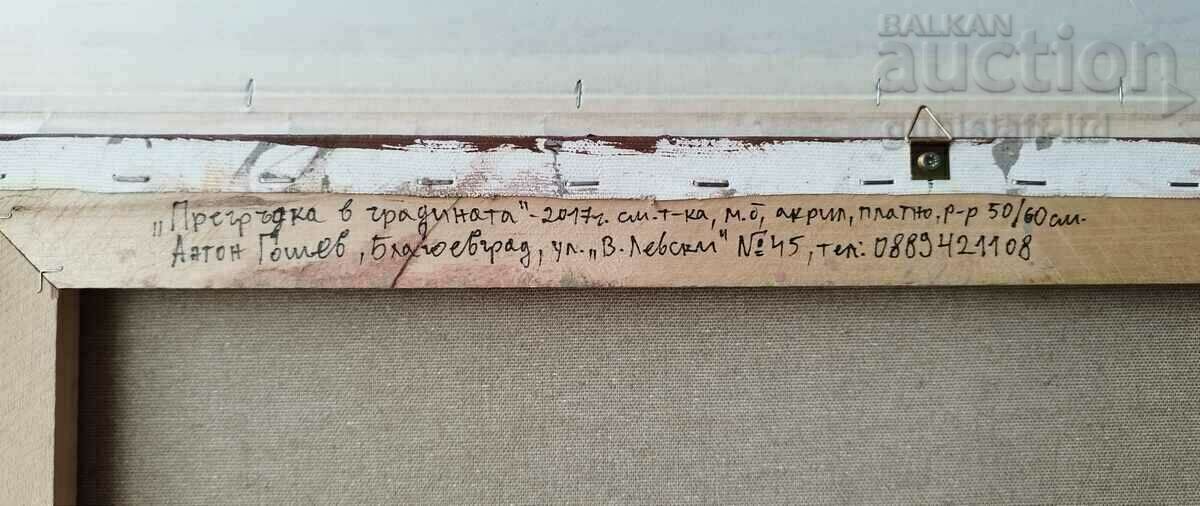 BALKAN
auction
gunastafi ltd
„Прегръдка в градината"-2017г. см.т-ка, м.б, акрил, платно, р-р 50/60см.
Антон Гошев, Благоевград, ул. „В. Левски" № 45, тел: 0889421108